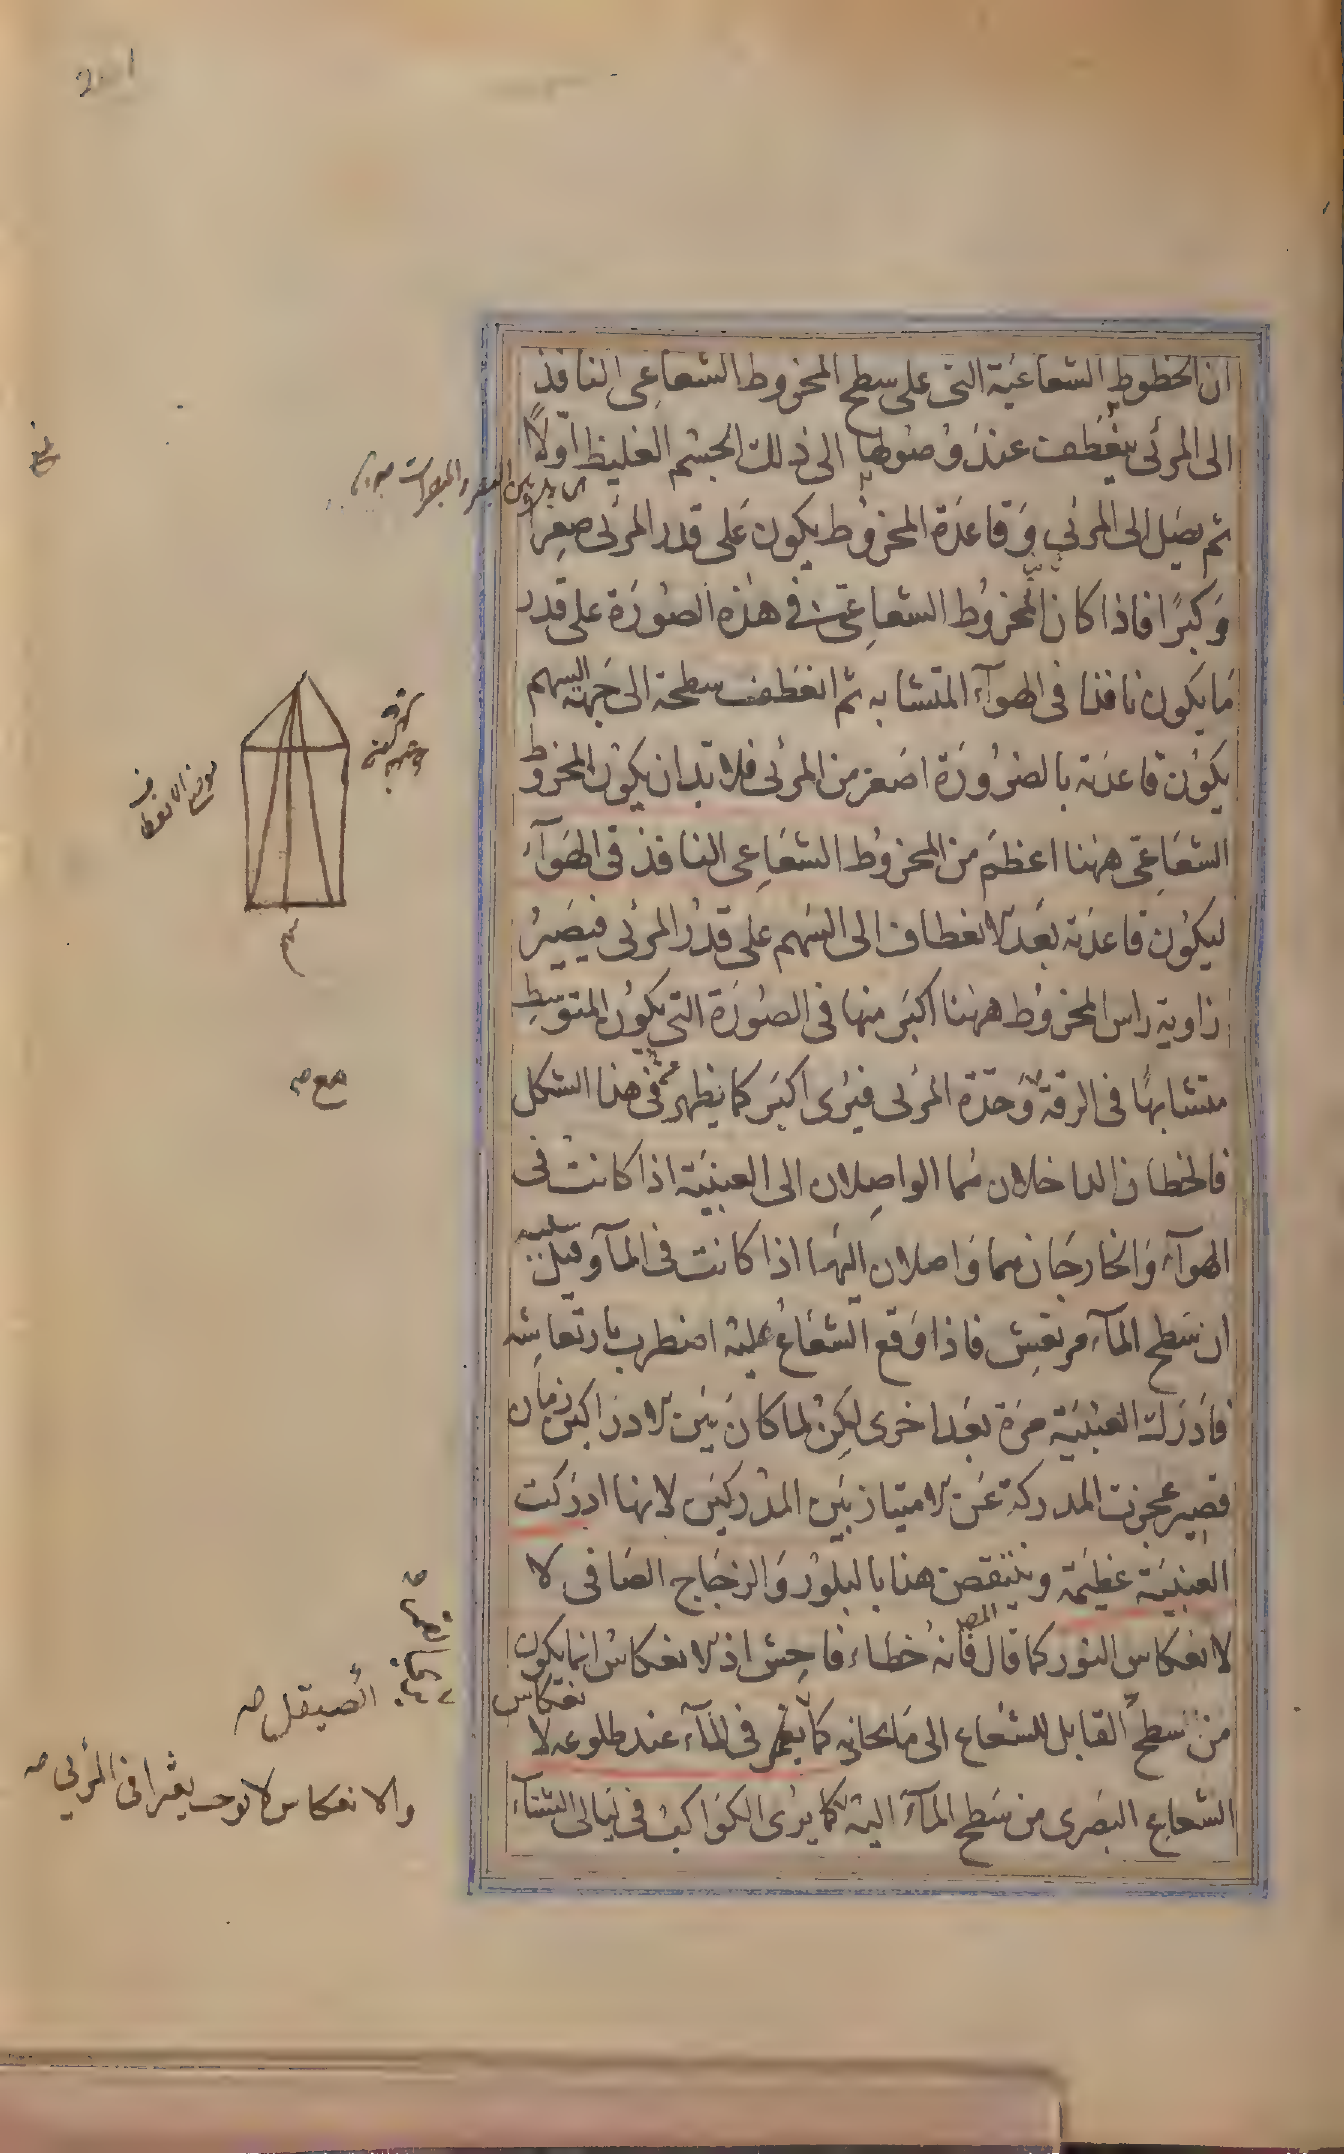 ان الخطوط الشعاعية التى على سطح المخروط الشعاعى النافذ
الى المرئى ينعطف عند وصولها الى ذلك الجسم الغليظ اولاً
ثم يصل الى المرئى وقاعدة المخروط يكون على قدر المرئى صغرا
وكبرًا فاذا كان المخروط الشعاعى فى هذه الصورة على قدر
ما يكون نافذا فى الهوآء المتشابه ثم انعطف سطحه الى جهة السهم
يكون قاعدته بالضرورة اصغر من المرئى فلا بد ان يكون المخروط
الشعاعى ههنا اعظم من المخروط الشعاعى النافذ فى الهوآء
ليكون قاعدته بعد الانعطاف الى السهم على قدر المرئى فيصير
زاوية راس المخروط ههنا اكبر منها فى الصورة التى يكون المتوسط
متشابهًا فى الرقة وحدة المرئى فيرى اكبر كما يظهر فى هذا الشكل
فالخطان الداخلان هما الواصلان الى العنبية اذا كانت فى
الهوآء والخارجان هما واصلان اليها اذا كانت فى المآء وقيل سببه
ان سطح المآء مرتعش فاذا وقع الشعاع عليه اضطرب بارتعاشه
فادركت العنبية مرة بعد اخرى لكن لما كان بين الادراكين زمان
قصير عجزت المدركة عن الامتياز بين المدركين لا نها ادركت
العنبية عظيمة وينتقض هذا بالبلور والزجاج الصافى لا
لانعكاس النور كما قال المص فانه خطاء فاحش اذ الانعكاس انما يكون
من سطح القابل للشعاع الى ما يحاذيه كالقمر فى المآء عند طلوعه لا انعكاس
الشعاع البصرى من سطح المآء اليه كما يرى الكواكب فى ليالى الشتآء
بين البصر والمبصرات
موضع الانعطاف
الصيقل صه
والانعكاس لا يوجب تغيرا فى المرئى صه